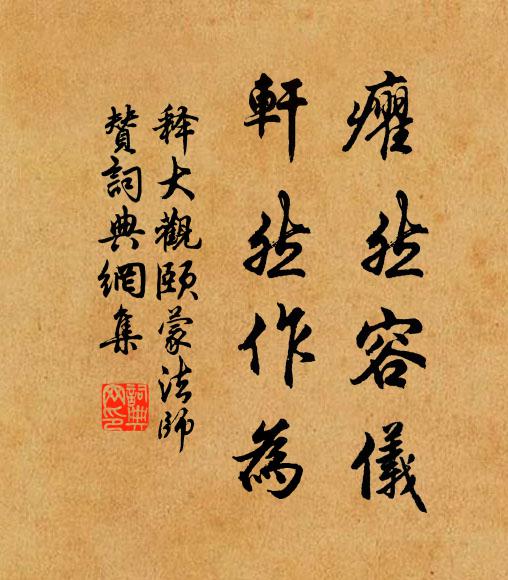 癯然容儀
軒然作為
释大觀頤蒙法師
贊詞典網集
詞典
网印